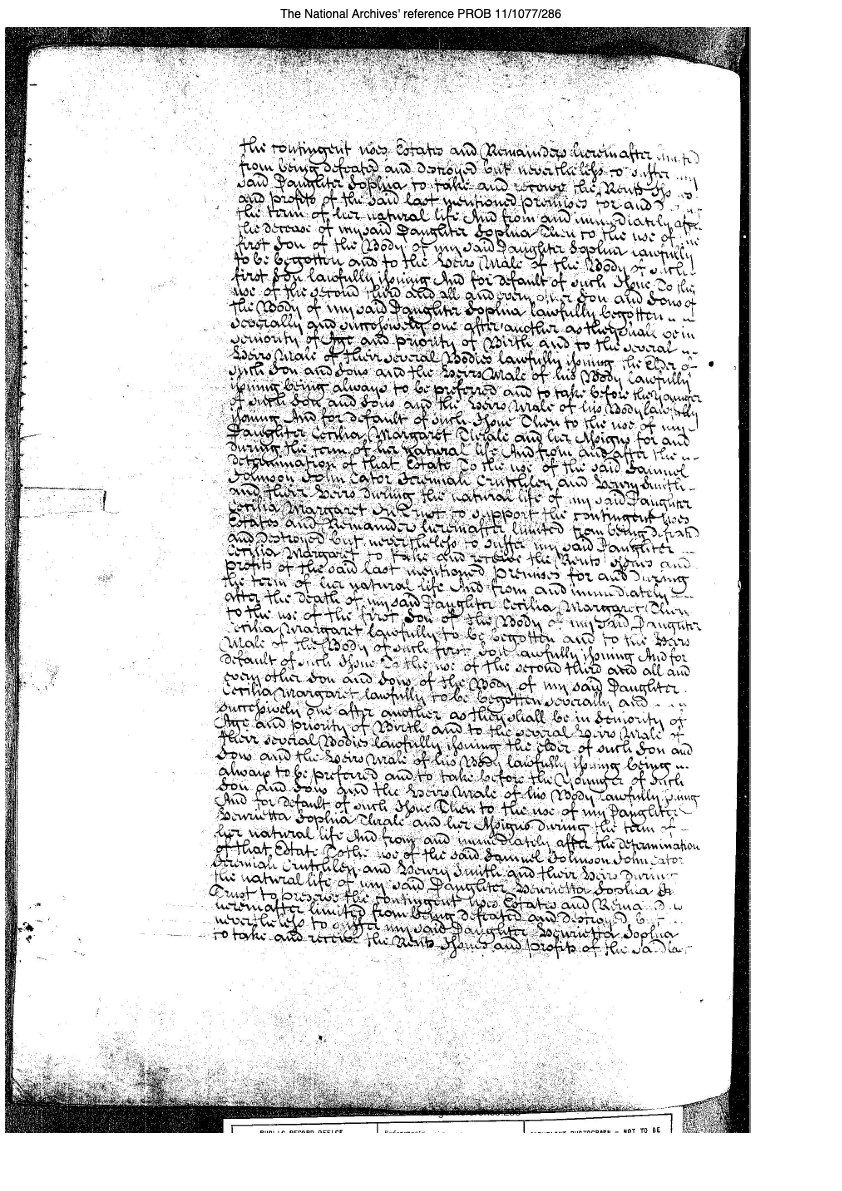 The National Archives' reference PROB 11/1077/286
the contingent uses Estates and Remainders hereinafter limited
from being defeated and destroyed but nevertheless to suffer my
said Daughter Sophia to take and receive the Rents Issues
and profits of the said last mentioned premises for and
the term of her natural life And from and immediately after
the decease of my said Daughter Sophia Then to the use of the
first Son of the Body of my said Daughter Sophia lawfully
to be begotten and to the Heirs Male of the Body of such
first Son lawfully issuing And for default of such Issue To the
use of the second third and all and every other Son and Sons of
the Body of my said Daughter Sophia lawfully begotten
severally and successively one after another as they shall be in
seniority of Age and priority of Birth and to the several
Heirs Male of their several Bodies lawfully issuing the Elder of
such Son and Sons and the Heirs Male of his Body lawfully
issuing being always to be preferred and to take before the younger
of such Son and Sons and the Heirs Male of his Body lawfully
issuing And for default of such Issue Then to the use of my
Daughter Cecilia Margaret Thrale and her Assigns for and
during the term of her natural life And from and after the
determination of that Estate To the use of the said Samuel
Johnson John Cator Jeremiah Crutchley and Henry Smith
and their Heirs during the natural life of my said Daughter
Cecilia Margaret In Trust to support the contingent uses
Estates and Remainders hereinafter limited from being defeated
and destroyed but nevertheless to suffer my said Daughter
Cecilia Margaret to take and receive the Rents Issues and
profits of the said last mentioned premises for and during
the term of her natural life And from and immediately
after the death of my said Daughter Cecilia Margaret Then
to the use of the first Son of the Body of my said Daughter
Cecilia Margaret lawfully to be begotten and to the Heirs
Male of the Body of such first Son lawfully issuing And for
default of such Issue To the use of the second third and all and
every other Son and Sons of the Body of my said Daughter
Cecilia Margaret lawfully to be begotten severally and
successively one after another as they shall be in seniority of
Age and priority of Birth and to the several Heirs Male of
their several Bodies lawfully issuing the elder of such Son and
Sons and the Heirs Male of his Body lawfully issuing being
always to be preferred and to take before the younger of such
Son and Sons and the Heirs Male of his Body lawfully issuing
And for default of such Issue Then to the use of my Daughter
Henrietta Sophia Thrale and her Assigns during the term of
her natural life And from and immediately after the determination
of that Estate To the use of the said Samuel Johnson John Cator
Jeremiah Crutchley and Henry Smith and their Heirs during
the natural life of my said Daughter Henrietta Sophia In
Trust to preserve the contingent uses Estates and
hereinafter limited from being defeated and destroyed but
nevertheless to suffer my said Daughter Henrietta Sophia
to take and receive the Rents Issues and profits of the said
PUBLIC RECORD OFFICE
PHOTOGRAPH - NOT TO BE